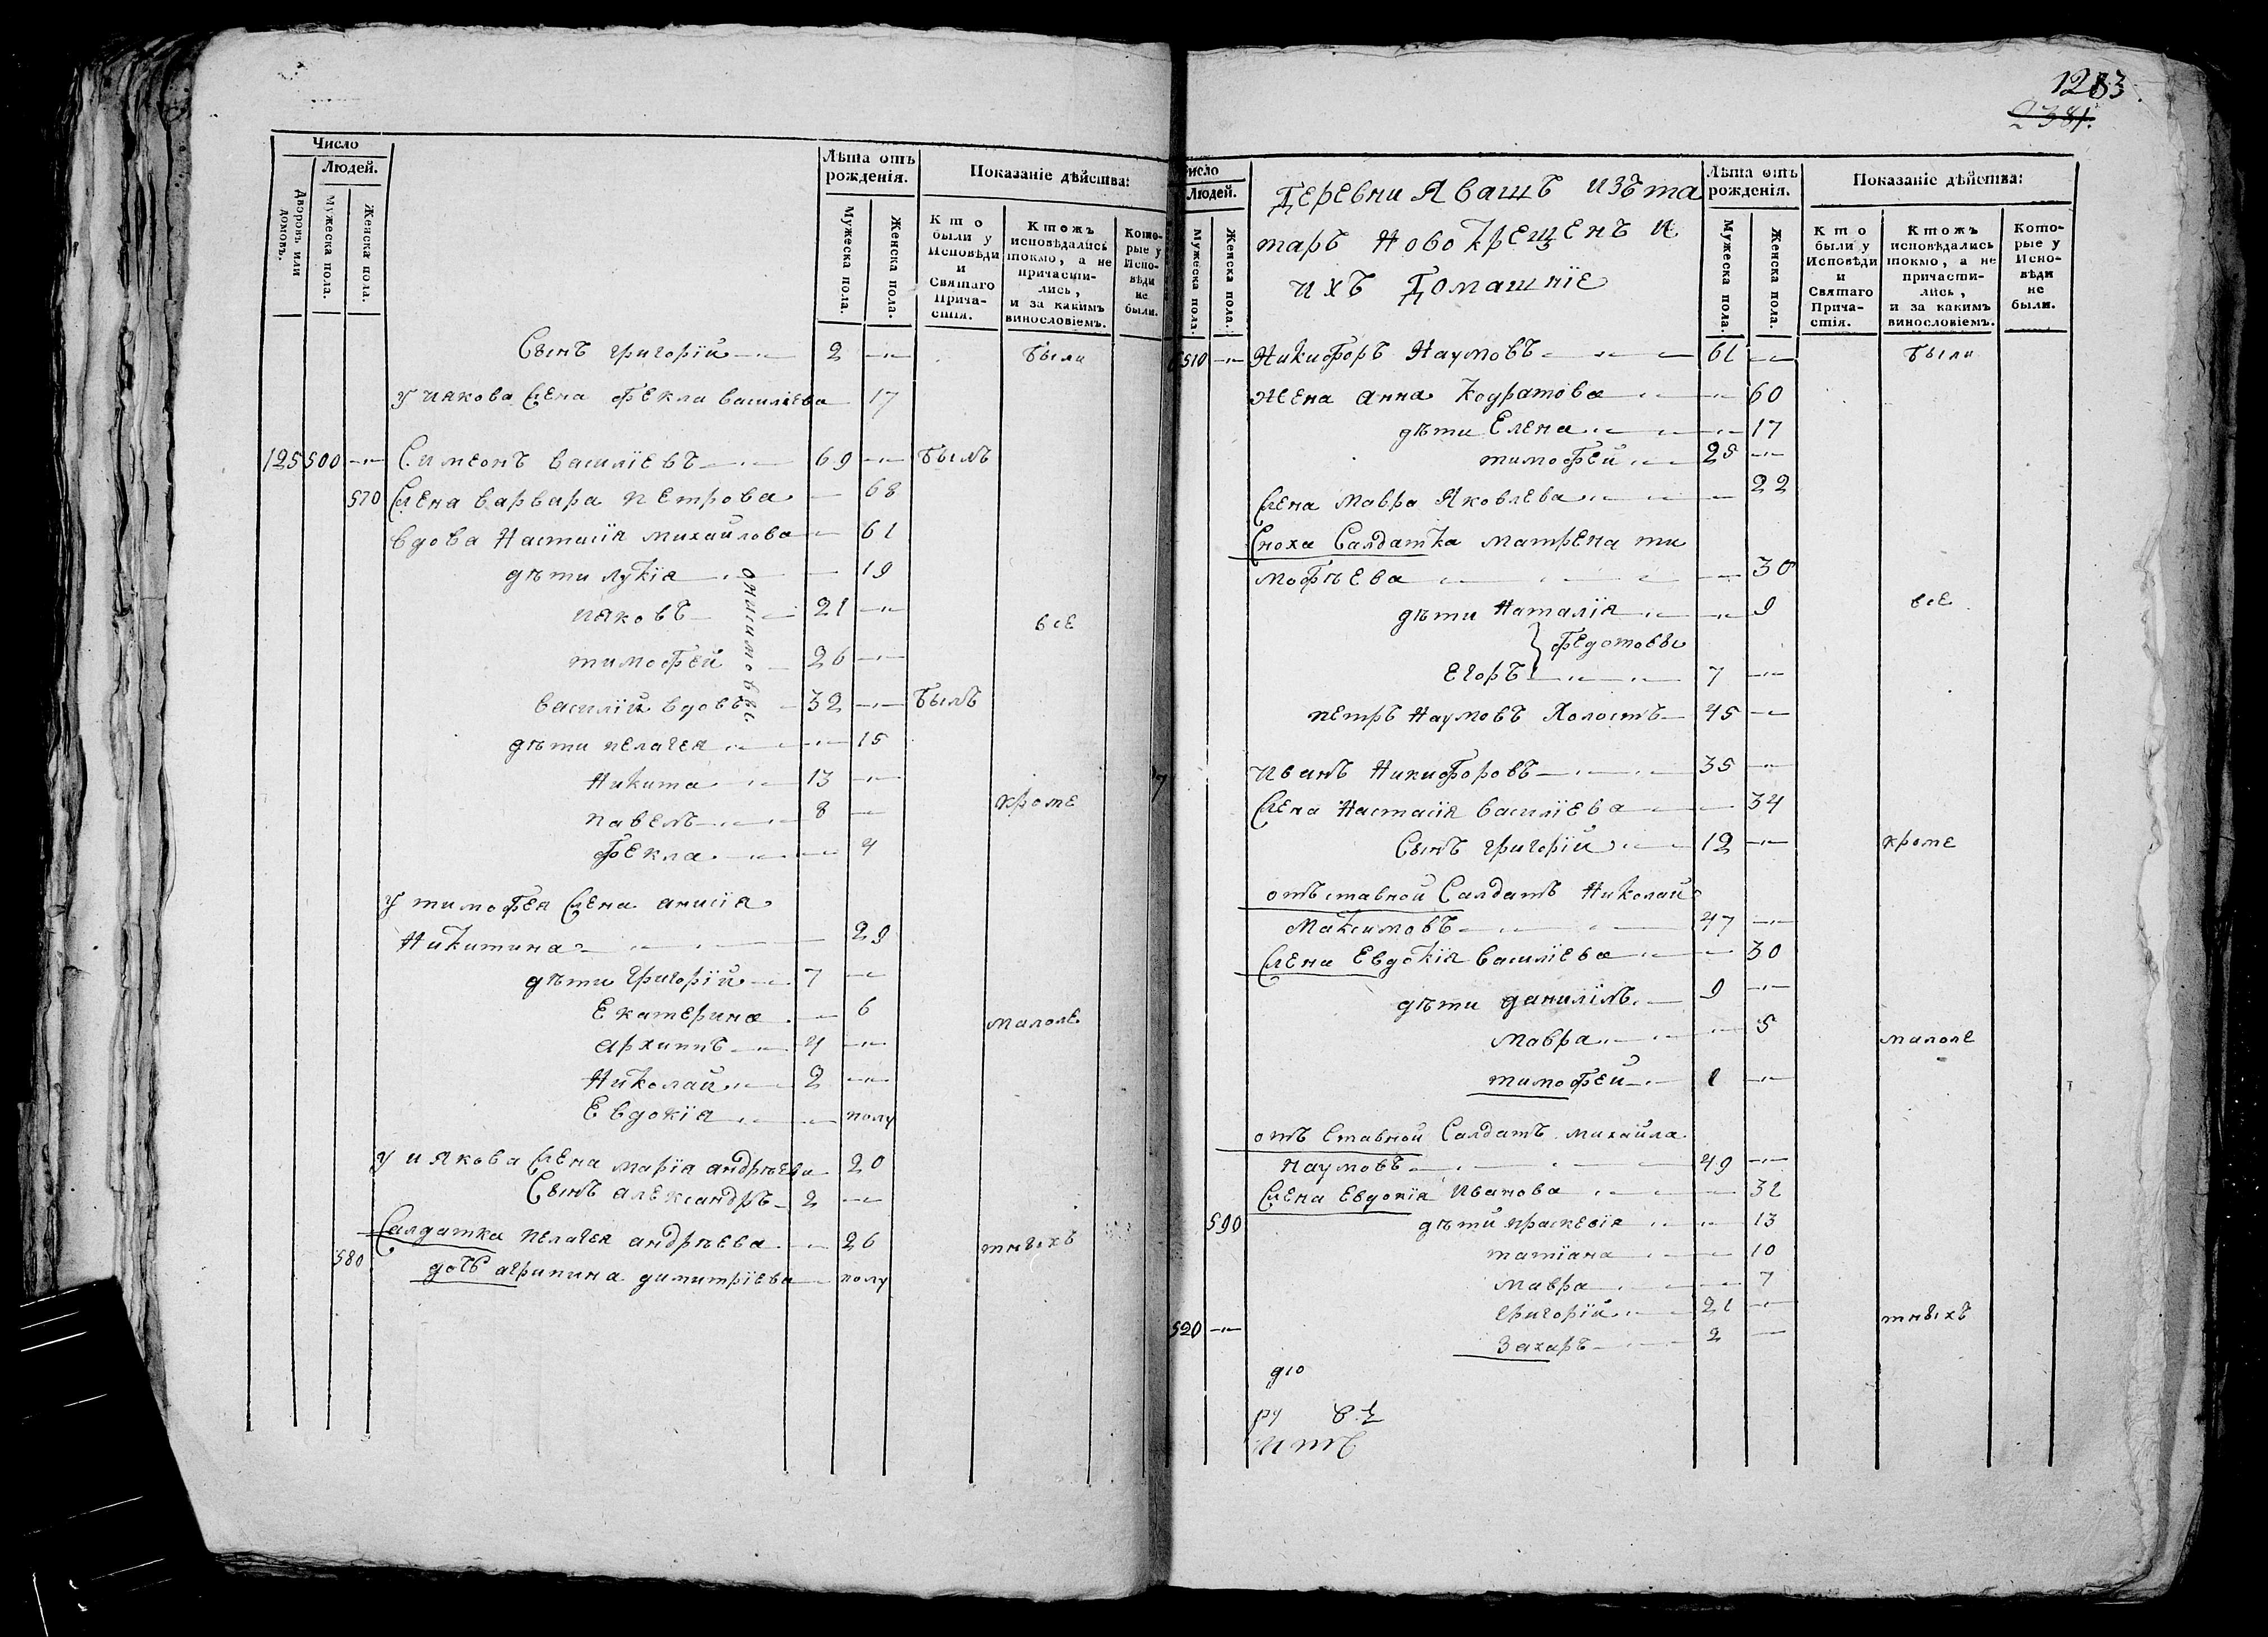 Число
Людей.
Дворовъ или домовъ.
Мужеска пола.
Женска пола.
Лѣта отъ рожденія.
Мужеска пола.
Женска пола.
Показаніе дѣйства:
Кто были у Исповѣди и Святаго Прича-стія.
Ктожъ исповѣдались токмо, а не причасти-лись, и за какимъ винословіемъ.
Кото-рые у Испо-вѣди не были.
Сынъ григорїй 2 были
у иякова жена фекла василїева 17
125 500 Симеонъ василїевъ 69 былъ
570 жена варвара петрова 68
вдова Настасїя михайлова 61
дѣти лукїя 19
ияковъ 21 все
тимофей 26
онисимовы
василїй вдовъ 32 былъ
дѣти пелагея 15
Никита 13
павелъ 8 кроме
фекла 4
у тимофея жена анисїя
Никитина 29
дѣти григорїй 7
Екатерина 6 малоле
архиппъ 4
Николай 2
Евдокїя полу
у иякова жена марїя андрѣева 20
Сынъ александръ 2
Салдатка пелагея андрѣева 26 тныхъ
580 дочь агрипина димитрїева полу
1283
2381.
Число
Людей.
Мужеска пола.
Женска пола.
Деревни Явашъ изъ та
таръ Новокрещенъ и
ихъ Домашнїе
Лѣта отъ рожденія.
Мужеска пола.
Женска пола.
Показаніе дѣйства:
Кто были у Исповѣди и Святаго Прича-стія.
Ктожъ исповѣдались токмо, а не причасти-лись, и за какимъ винословіемъ.
Кото-рые у Испо-вѣди не были.
510 Никифоръ Наумовъ 61 были
жена анна кодратова 60
дѣти Елена 17
тимофей 25
жена мавра Яковлева 22
Сноха Салдатка матрена ти
мофѣева 30
дѣти Наталїя 9 все
федотовы
Егоръ 7
петръ Наумовъ Холостъ 45
иванъ Никифоровъ 35
жена Настасїя василїева 34
Сынъ григорїй 12 кроме
отъставной Салдатъ Николай
Максимовъ 47
жена Евдокїя василїева 30
дѣти данилїлъ 9
мавра 5 малоле
тимофей 1
отъ Ставной Салдатъ михайла
наумовъ 49
жена Евдокїя иванова 32
590 дѣти праскевїя 13
татїана 10
мавра 7
григорїй 21 тныхъ
520 Захаръ 2